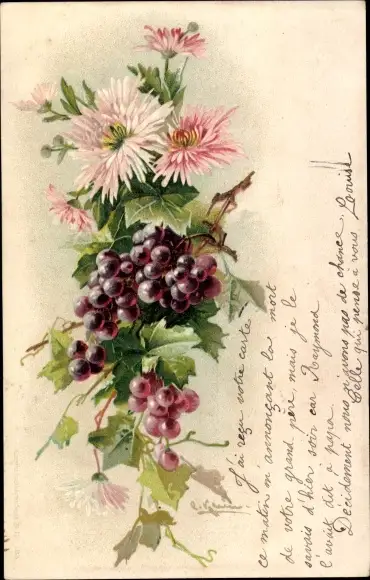 J'ai reçu votre carte
ce matin m'annonçant la mort
de votre grand père, mais je le
savais d'hier soir car Raymond
l'avait dit à papa.
Décidement nous n'avons pas de chance.
Celle qui pense a vous
Louise
C. Klein